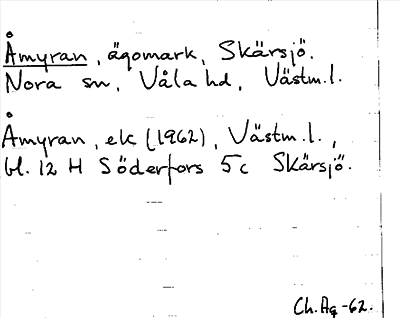 Åmyran, ägomark, Skärsjö.
Nora sn, Våla hd, Västm.l.
Åmyran, ek (1962), Västm.l.,
bl. 12 H Söderfors 5c Skärsjö.
Ch.Ag -62.